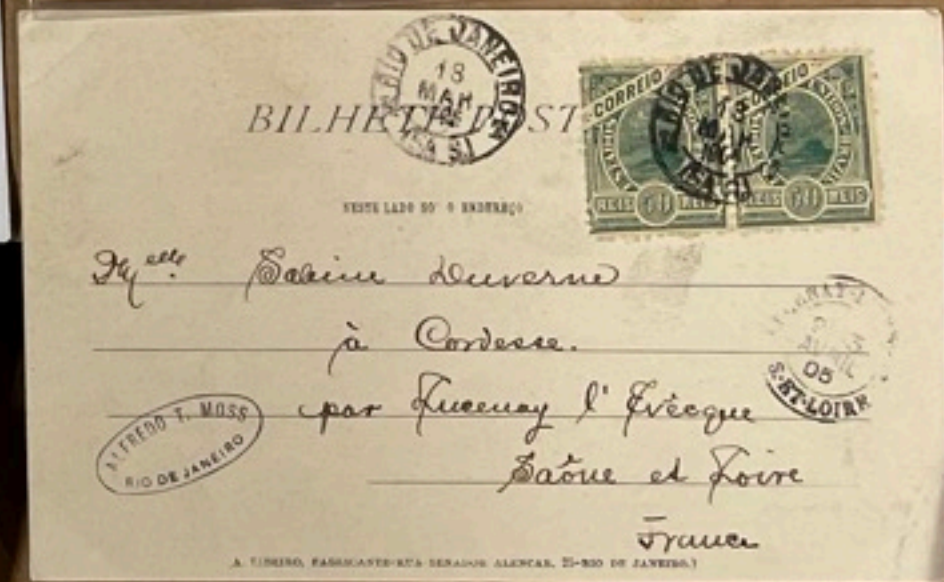 RIO DE JANEIRO
18
MAR
BILHETE POST
CORREIO
REIS 50 REIS
CORREIO
REIS 50 REIS
RIO DE JANEIRO
NESTE LADO SO' O ENDEREÇO
Melle Sabine Duverne
à Cordesse.
par Lucenay l'Évêque
Saône et Loire
France
AVRIL
05
S.-ET-LOIRE
ALFREDO T. MOSS
RIO DE JANEIRO
A. RIBEIRO, FABRICANTE-RUA SENADOR ALENCAR, 25-RIO DE JANEIRO.